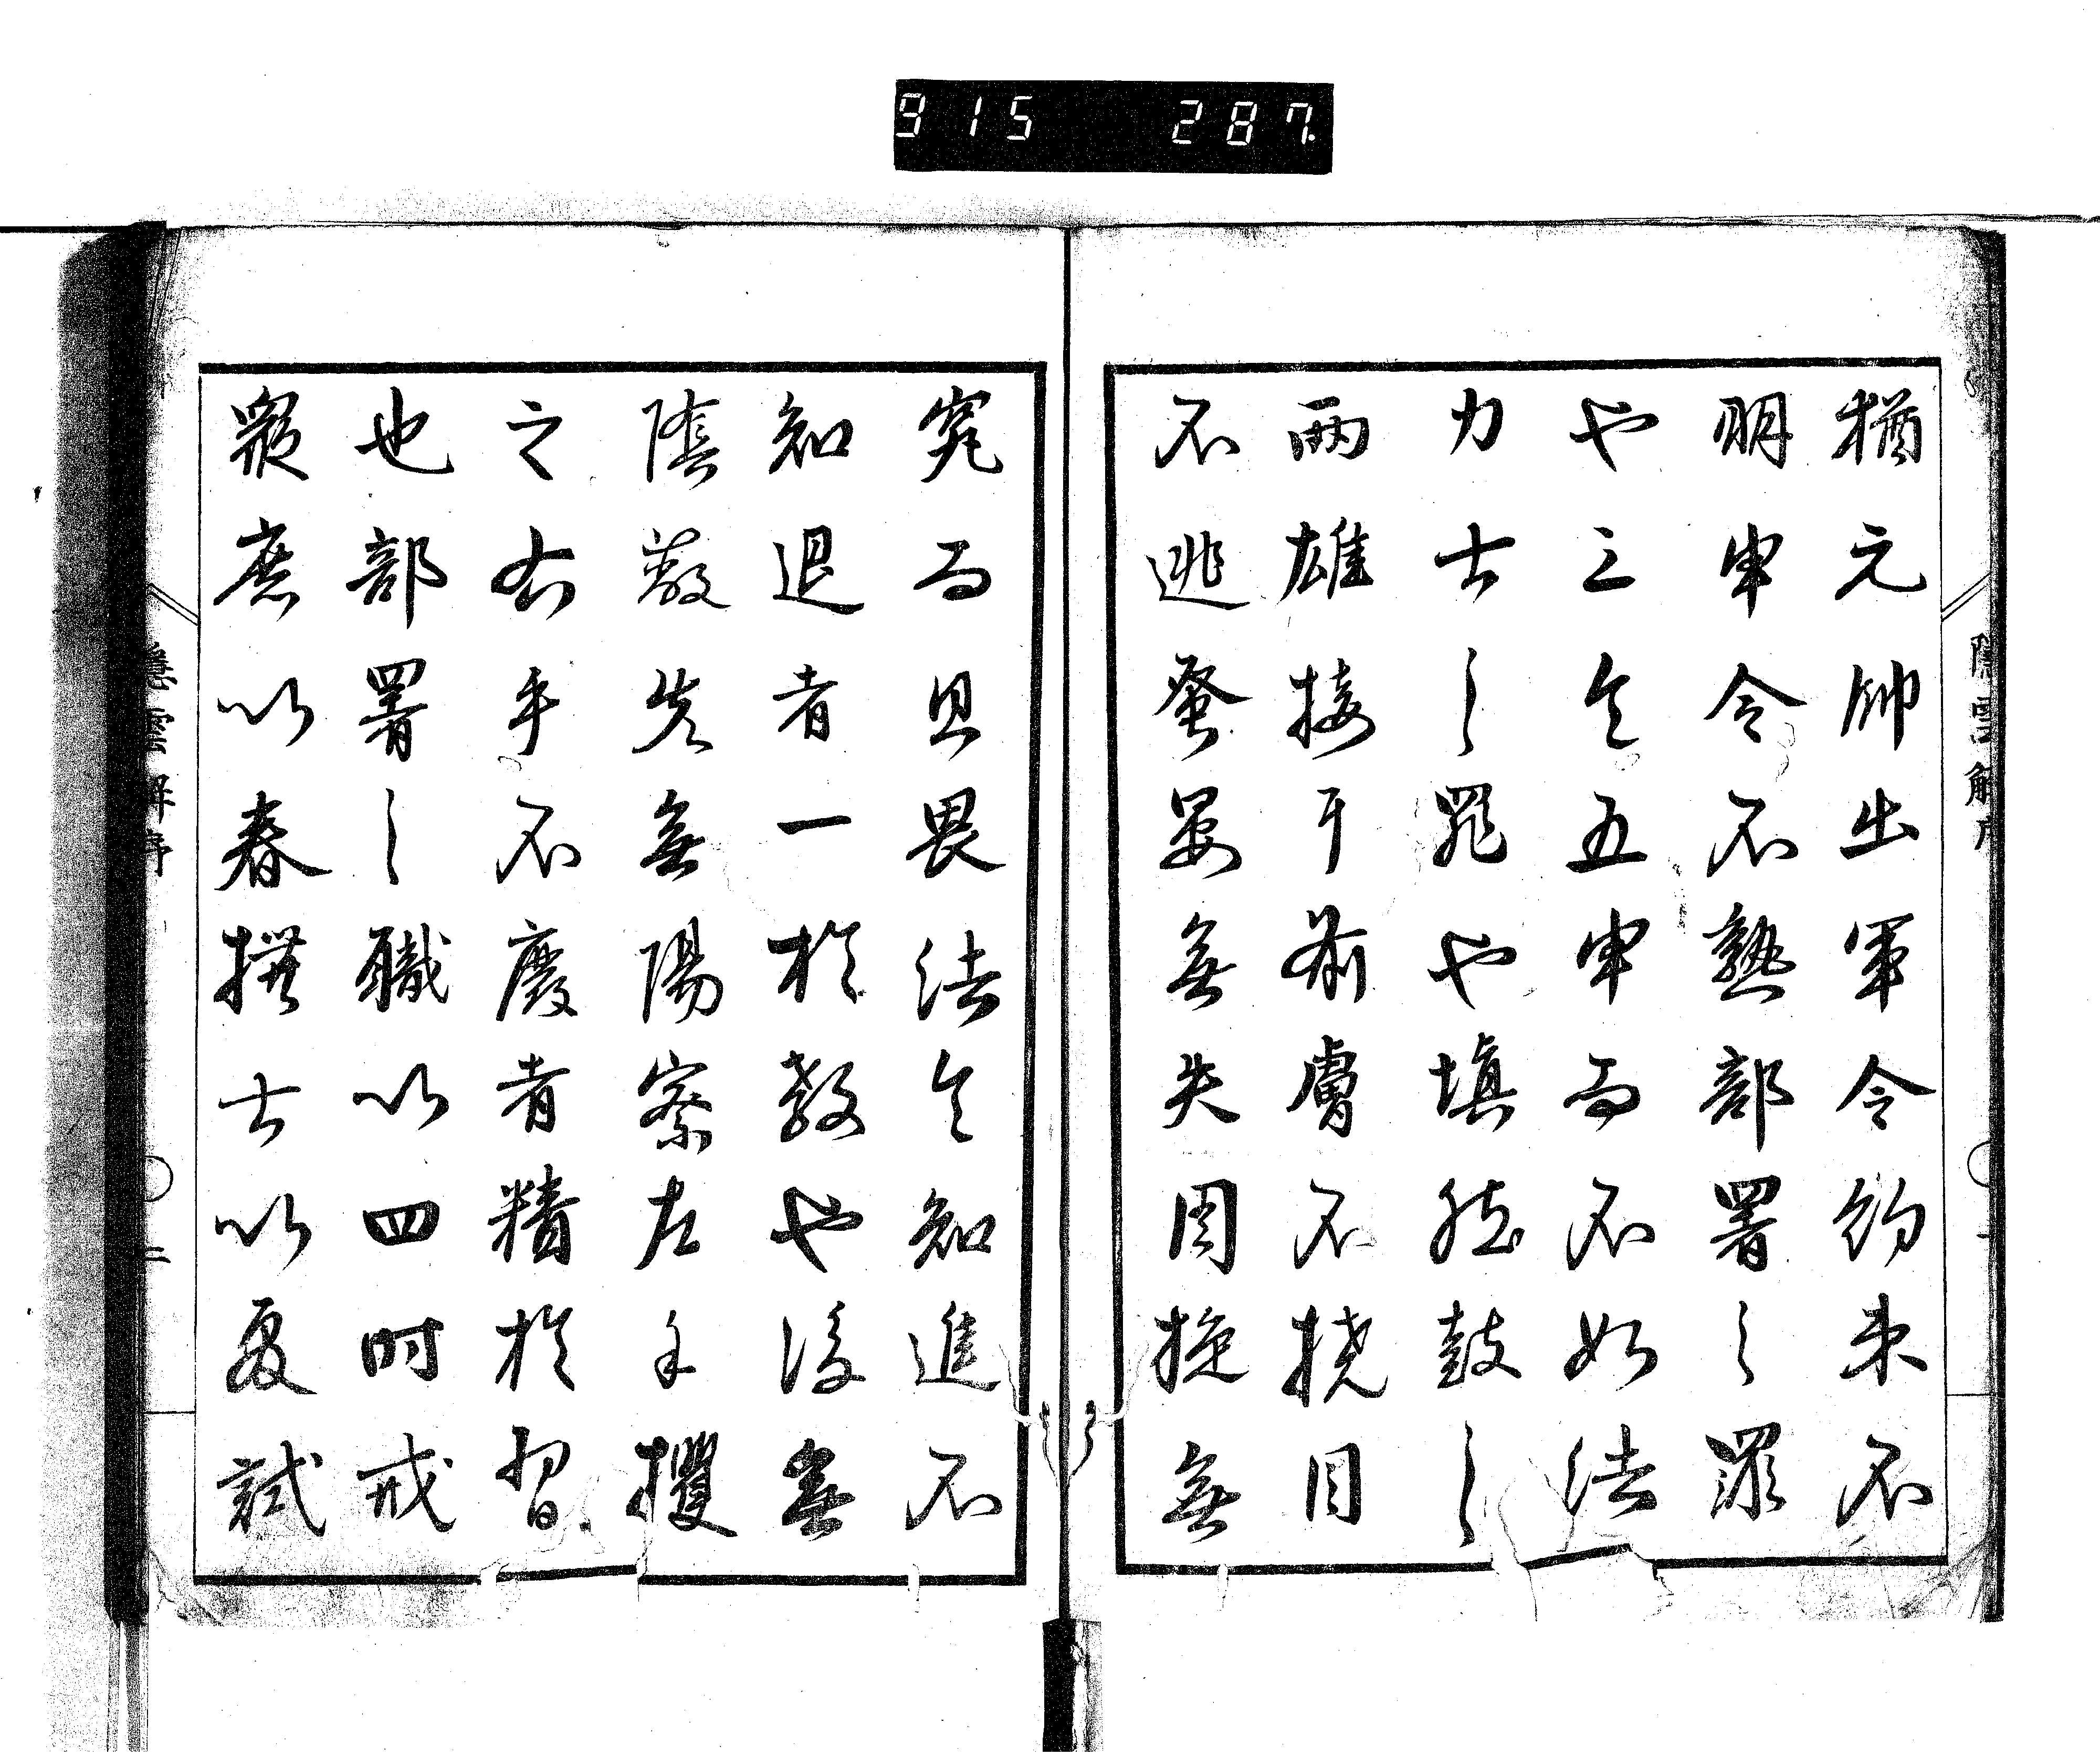 915 287
猶元帥出軍令約束不
明申令不熟部署之罪
也三令五申而不如法
力士之罪也填然鼓之
兩雄接于前膚不撓目
不逃發晷無失周旋無
究而且畏法令知進不
知退者一於教也後無
陰數先無陽察左手攫
之右手不廢者精於習
也部署之職以四時戒
嚴麾以春撰士以夏試
隱雲解序
隱雲解序 二